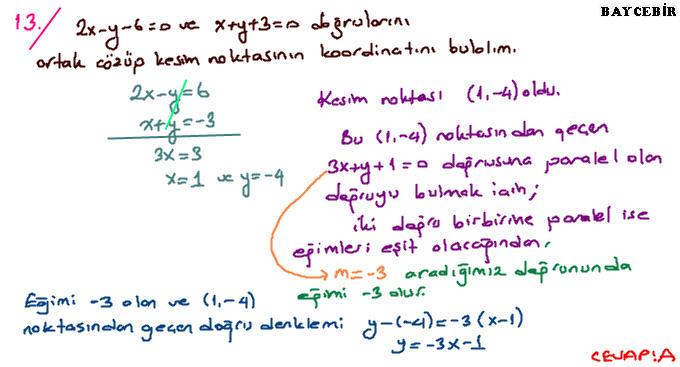 BAYCEBİR
13. 2x-y-6=0 ve x+y+3=0 doğrularını
ortak çözüp kesim noktasının koordinatını bulalım.
2x-y=6
x+y=-3
3x=3
x=1 ve y=-4
Kesim noktası (1,-4) oldu.
Bu (1,-4) noktasından geçen
3x+y+1=0 doğrusuna paralel olan
doğruyu bulmak için;
iki doğru birbirine paralel ise
eğimleri eşit olacağından,
m=-3 aradığımız doğrununda
eğimi -3 olur.
Eğimi -3 olan ve (1,-4)
noktasından geçen doğru denklemi y-(-4)=-3(x-1)
y=-3x-1
CEVAP:A